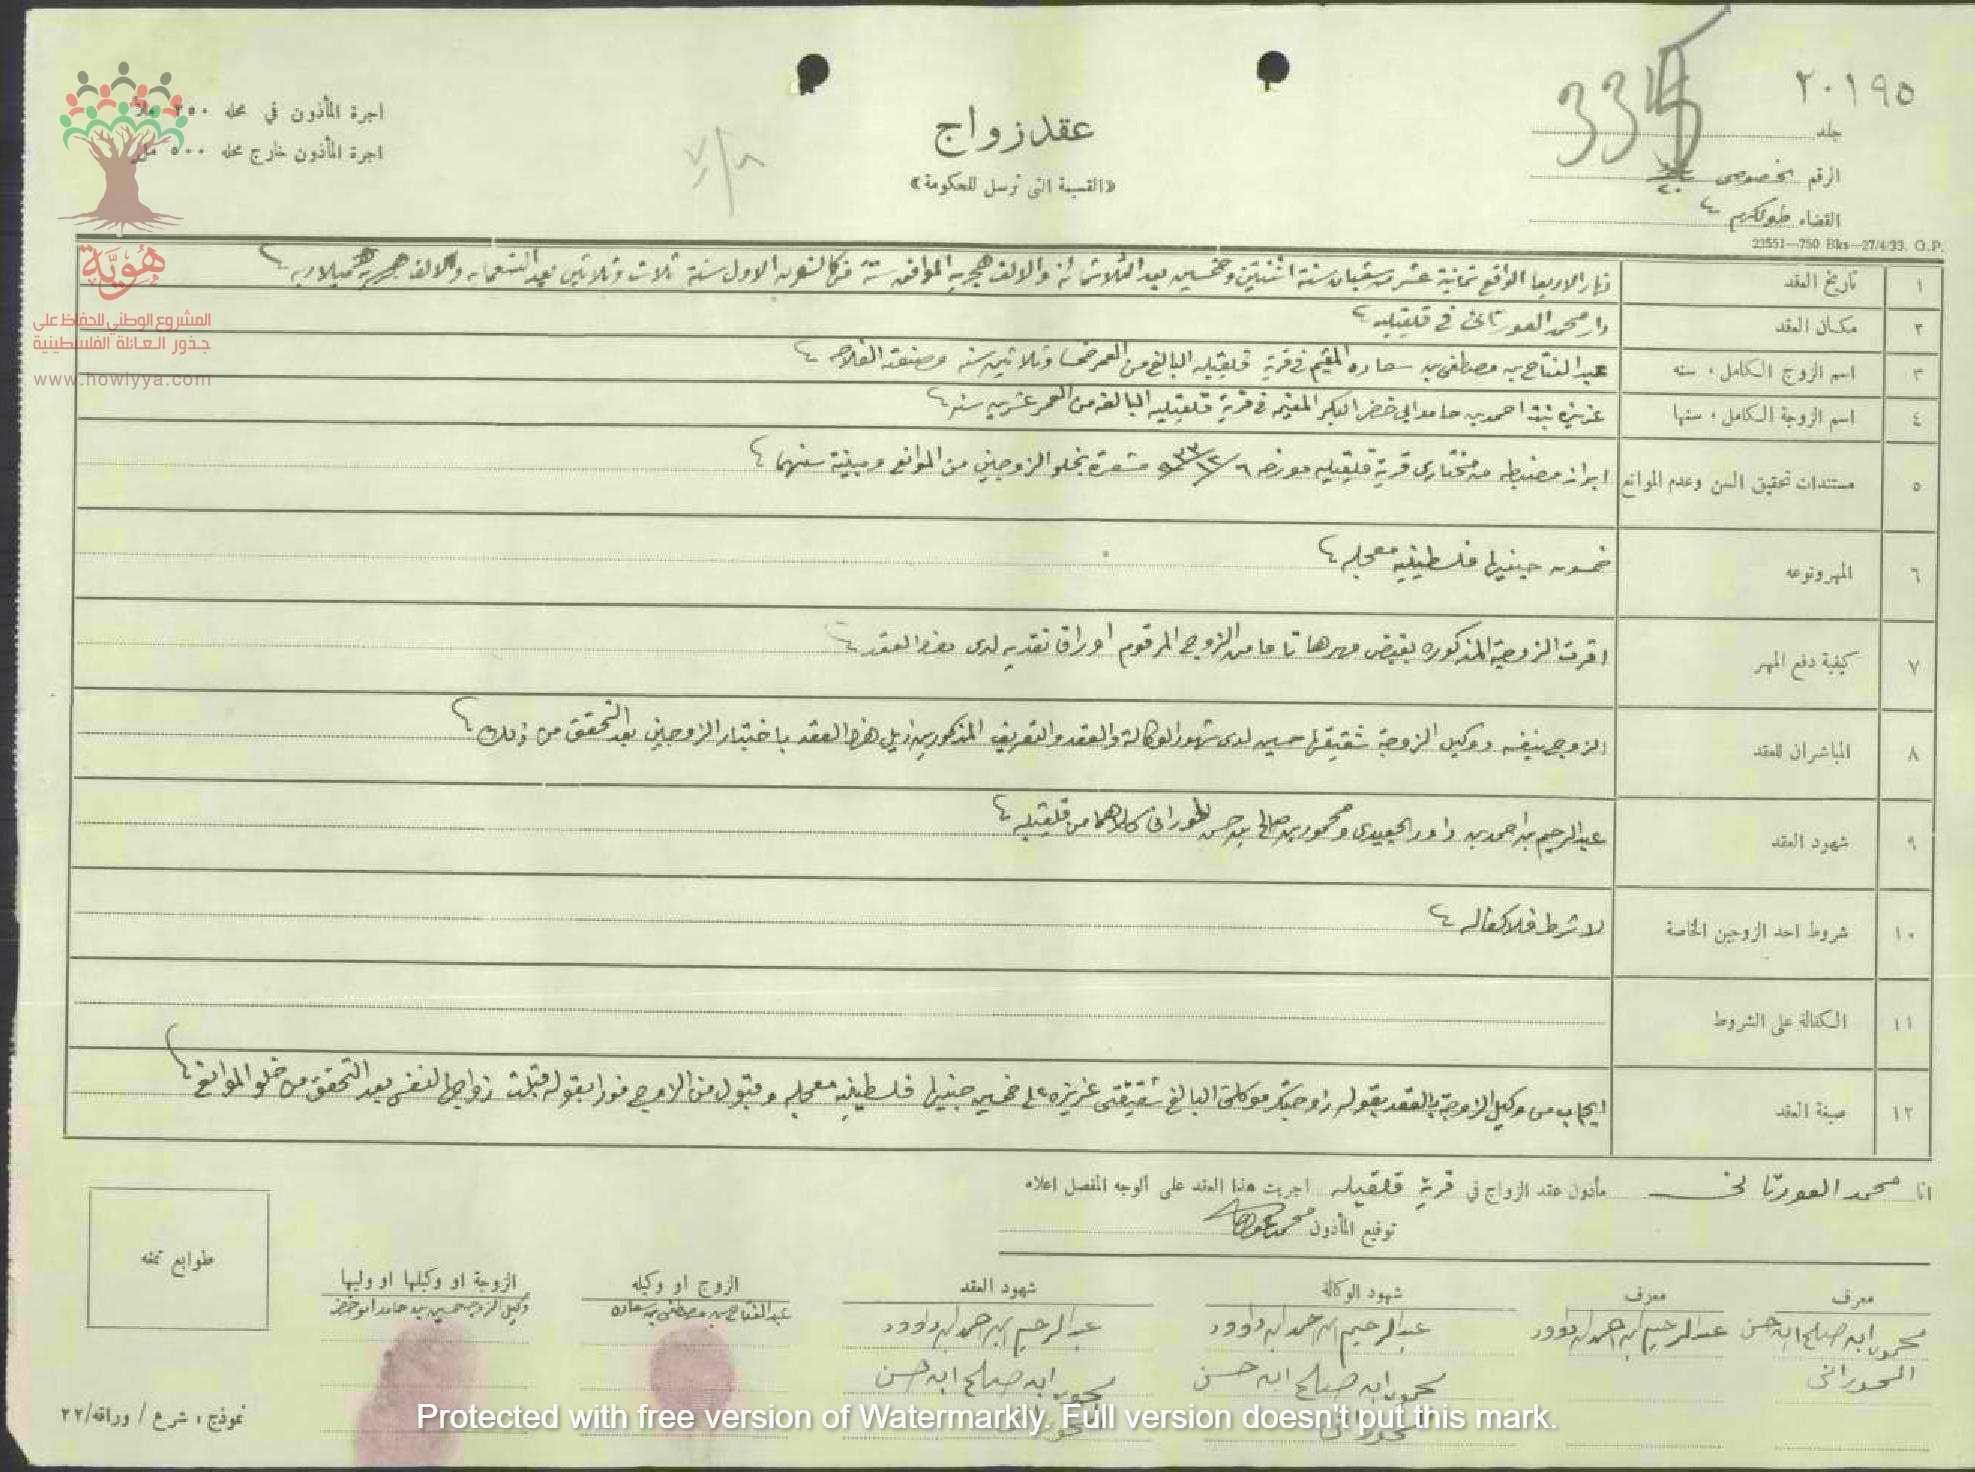 ٢٠١٩٥
335
جلد
الرقم الخصوصي
القضاء طولكرم
23551—750 Bks—27/4/33. G.P.
عقد زواج
«القسيمة التي ترسل للحكومة»
٧/٨
اجرة المأذون في محله ٢٥٠ ملاً
اجرة المأذون خارج محله ٥٠٠ مل
هُوِيَّة
المشروع الوطني للحفاظ على
جذور العائلة الفلسطينية
www.howiyya.com
١ تاريخ العقد نهار الاربعا الواقع ثمانية عشر من شعبان سنة اثنتين وخمسين بعد الثلاثمائة والالف هجريه الموافق سنة كانون الاول سنة ثلاث وثلاثين بعد التسعمايه والالف ميلاديه
٢ مكان العقد دار محمد العورتاني في قلقيليه
٣ اسم الزوج الكامل، سنه عبد الفتاح بن مصطفى بن سعاده المقيم في قرية قلقيليه البالغ من العمر خمسا وثلاثين سنه وصنعته الفلاحه
٤ اسم الزوجة الكامل، سنها عزيزه بنت احمد بن حامد ابي خضر البكر المقيمه في قرية قلقيليه البالغه من العمر عشرين سنه
٥ مستندات تحقيق السن وعدم الموانع ابراز مضبطه من مختاري قرية قلقيليه مورخه ٦/١٢/٩٣٣ مشعرة بخلو الزوجين من الموانع ومبينة سنهما
٦ المهر ونوعه خمسون جنيها فلسطينيه معجله
٧ كيفية دفع المهر اقرت الزوجة المذكوره بقبض مهرها تاما من الزوج المرقوم اوراق نقديه لدى العقد
٨ المباشران للعقد الزوج بنفسه ووكيل الزوجة شقيقها حسين لدى شهود الوكالة والعقد والتعريف المذكورين ذيل هذا العقد باختيار الزوجين بعد التحقق من ذلك
٩ شهود العقد عبد الرحيم بن احمد بن داود الجعيدي ومحمود بن صالح بن حسن الحوراني كلاهما من قلقيليه
١٠ شروط احد الزوجين الخاصة لا شرط فلا كفاله
١١ الكفالة على الشروط
١٢ صيغة العقد ايجاب من وكيل الزوجة بالعقد بقوله زوجتك موكلتي البالغ شقيقتي عزيزه على خمسين جنيها فلسطينيه معجله وقبول من الزوج فورا بقوله قبلت زواجها لنفسي بعد التحقق من خلو الموانع
انا محمد العورتاني مأذون عقد الزواج في قرية قلقيليه اجريت هذا العقد على الوجه المفصل اعلاه
توقيع المأذون
معرف
محمود ابن صالح ابن حسن
الحوراني
معرف
عبد الرحيم ابن احمد ابن داوود
شهود الوكالة
عبد الرحيم ابن احمد ابن داوود
محمود ابن صالح ابن حسن
الحوراني
شهود العقد
عبد الرحيم ابن احمد ابن داوود
محمود ابن صالح ابن حسن
الزوج او وكيله
عبد الفتاح بن مصطفى بن سعاده
الزوجة او وكيلها او وليها
وكيل الزوجه حسين بن حامد ابو خضر
طوابع تمغه
نموذج، شرع / وراقه/٢٢
Protected with free version of Watermarkly. Full version doesn't put this mark.